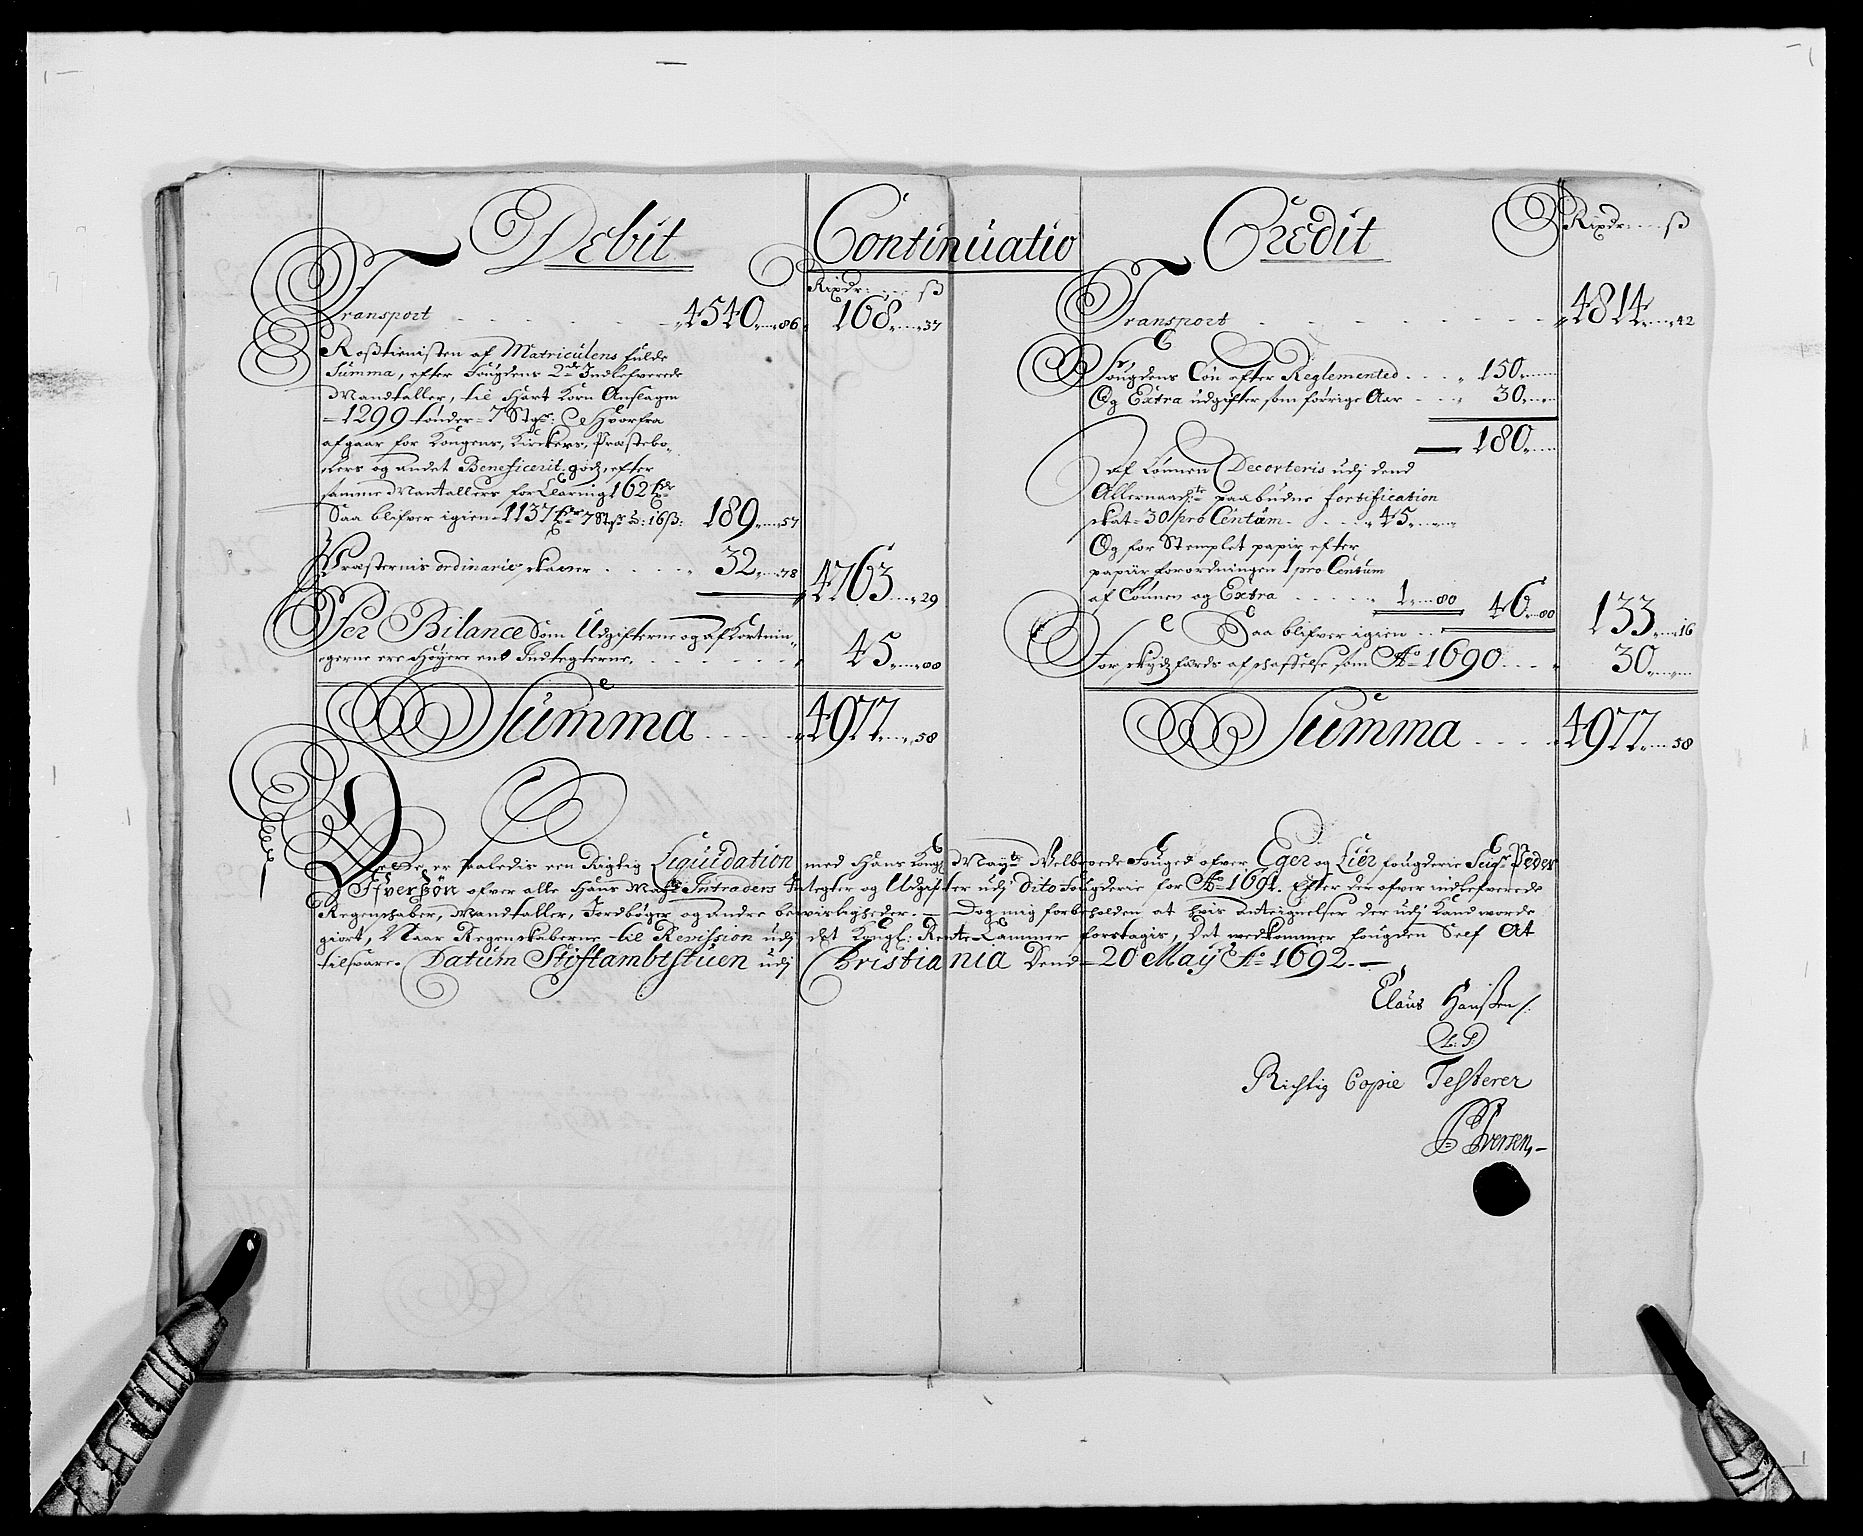 Debit Continuatio Credit
Rixdr: ß
Rixdr: ß
Transport 4540 86 168 37
Roßtienisten af Matriculens fulde
Summa, efter Fougdens 2de Indlefverede
Mandtaller, til Hart Korn Anslagen
1299 tønder 7 Hvorfra
afgaar for Kongens, Kirckers, Præstebo-
lers og andet Beneficerit godz, efter
samme Mantallers forClaring 162
Saa blifver igien 1137 7 16ß: 189 57
Præsternis ordinarie skatter 32 78 4763 29
Per Bilance Som Udgifterne og afKortnin-
gerne ere Høyere end Indtegterne 45
Summa 4977 58
Transport 4814 42
Fougdens Løn efter Reglemented 150
Og Extra udgifter som forrige Aar 30
180
af Lønnen Decorteris udj dend
Allernaadste paabudne fortification
skat 30 pro Centum 45
Og for Stemplet papir efter
papiir forordningen 1 pro Centum
af Lønnen og Extra 1 80 46 80
Saa blifver igien 133 16
For skydzfærds afschaffelse som Ao 1690 30
Summa 4977 58
er saaledis een Rigtig Liquidation med Hans Kongl Mayts Welb. Fouged ofver Eger og Lier fougderie Seigr Peder
Ifverßøn ofver alle Hans Mayts Intraders Indtegter og Udgifter udj dito Fougderie for Ao 1691. Efter der ofver indlefverede
Regenschaber, Mandtaller, Jordbøger og andre bevisligheder. – Dog mig forbeholden at hvis Anteignelser der udj Kand worde
giort, Naar Regenskaberne til Revission udj det Kongl: Rente Cammer foretagis, Det vedkommer fougden Self At
tilsvare. Datum Stiftambtstuen udj Christiania Dend 20 May Ao 1692.
Claus Hanßen
L.S.
Richtig Copie Testerer
P Iversen